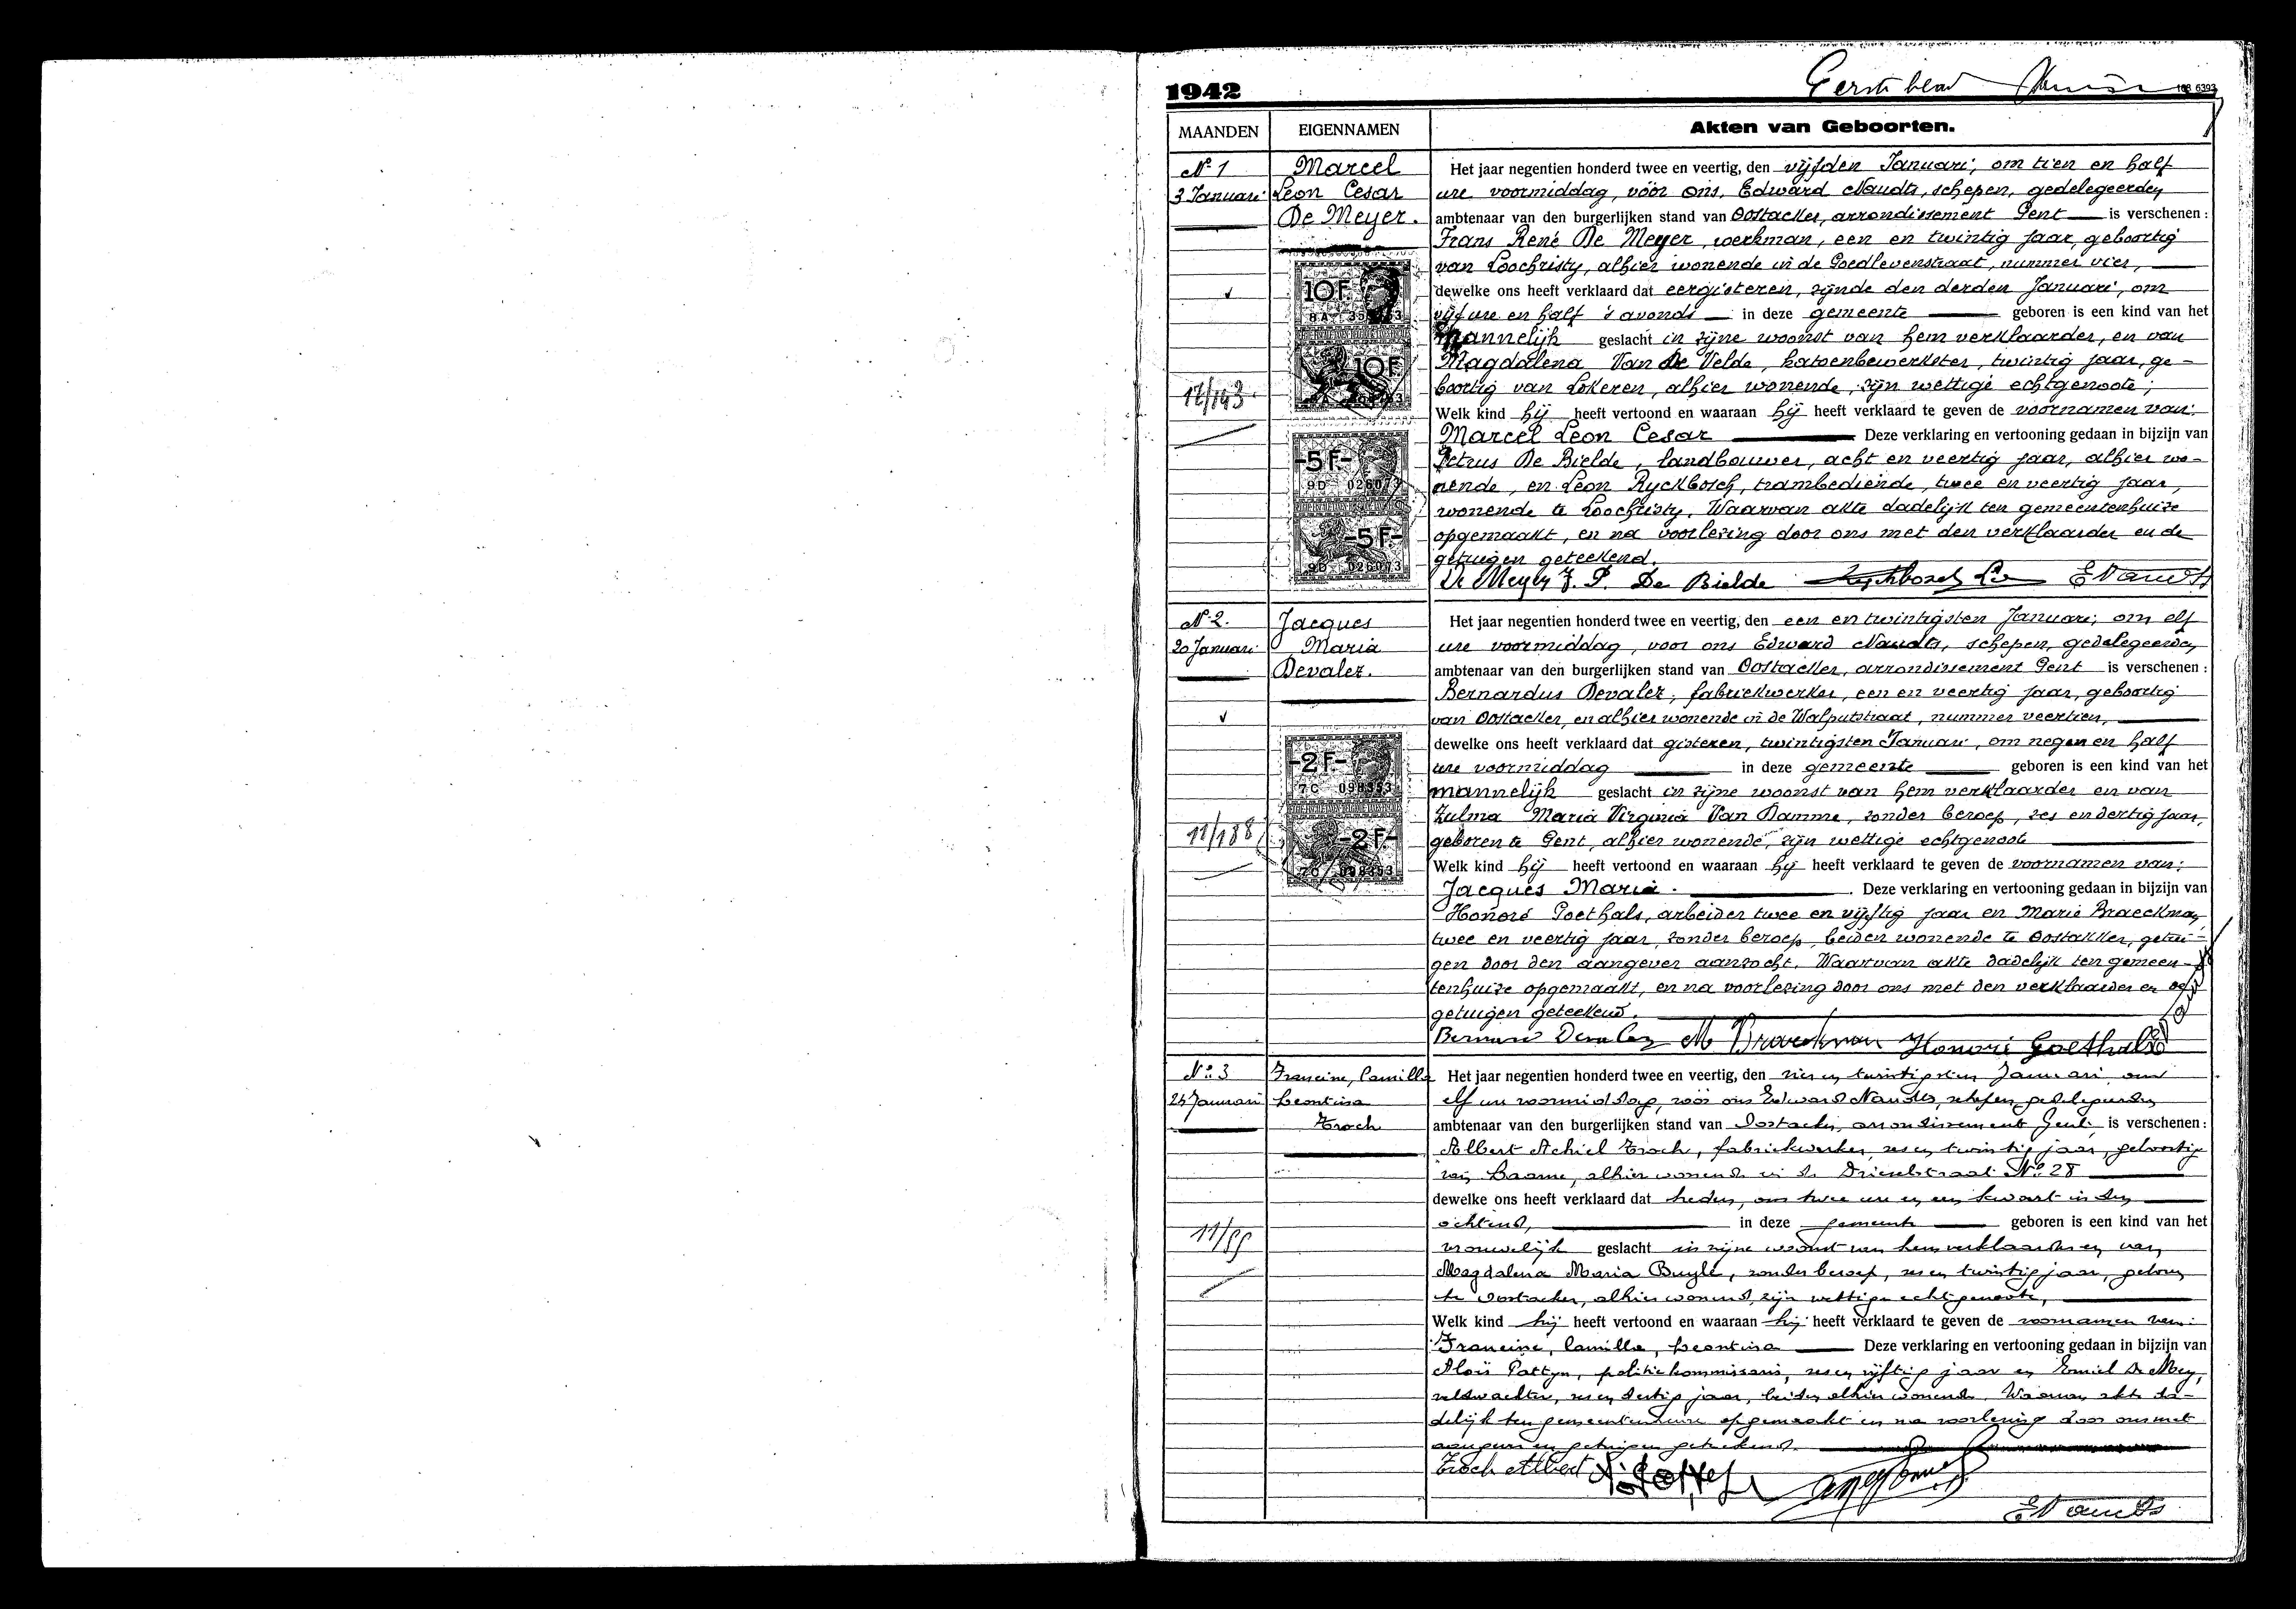 Eerste blad
1942
108 6393
MAANDEN
EIGENNAMEN
Akten van Geboorten.
N° 1
3 Januari
Marcel
Leon Cesar
De Meyer.
17/143
10F.
8A 35
10F
-5F.-
9D 026073
-5F-
9D 026073
Het jaar negentien honderd twee en veertig, den vijfden Januari, om tien en half
ure voormiddag, vóór ons, Edward Naudts, schepen, gedelegeerden
ambtenaar van den burgerlijken stand van Oostacker, arrondissement Gent is verschenen :
Frans René De Meyer, werkman, een en twintig jaar, geboortig
van Loochristy, alhier wonende in de Goedlevenstraat, nummer vier,
dewelke ons heeft verklaard dat eergisteren, zijnde den derden Januari, om
vijf ure en half 's avonds in deze gemeente geboren is een kind van het
mannelijk geslacht in zijne woonst van hem verklaarder, en van
Magdalena Van de Velde, katoenbewerkster, twintig jaar, ge-
boortig van Lokeren, alhier wonende, zijn wettige echtgenoote;
Welk kind hij heeft vertoond en waaraan hij heeft verklaard te geven de voornamen van:
Marcel Leon Cesar Deze verklaring en vertooning gedaan in bijzijn van
Petrus De Bielde, landbouwer, acht en veertig jaar, alhier wo-
nende, en Léon Ryckbosch, trambediende, twee en veertig jaar,
wonende te Loochristy. Waarvan akte dadelijk ten gemeentenhuize
opgemaakt, en na voorlezing door ons met den verklaarder en de
getuigen geteekend.
De Meyer F. P. De Bielde Ryckbosch Le ENaudts
N° 2.
20 Januari
Jacques
Maria
Devalez.
11/188
-2F.-
7C 098353
-2F-
7C 098353
Het jaar negentien honderd twee en veertig, den een en twintigsten Januari, om elf
ure voormiddag, voor ons Edward Naudts, schepen, gedelegeerden
ambtenaar van den burgerlijken stand van Oostacker, arrondissement Gent is verschenen :
Bernardus Devalez, fabriekwerker, een en veertig jaar, geboortig
van Oostacker, en alhier wonende in de Walputstraat, nummer veertien,
dewelke ons heeft verklaard dat gisteren, twintigsten Januari, om negen en half
ure voormiddag in deze gemeente geboren is een kind van het
mannelijk geslacht in zijne woonst van hem verklaarder en van
Zulma Maria Virginia Van Damme, zonder beroep, zes en dertig jaar,
geboren te Gent, alhier wonende, zijn wettige echtgenoote
Welk kind hij heeft vertoond en waaraan hij heeft verklaard te geven de voornamen van:
Jacques Maria. Deze verklaring en vertooning gedaan in bijzijn van
Honoré Goethals, arbeider twee en vijftig jaar en Marie Braeckman
twee en veertig jaar, zonder beroep, beiden wonende te Oostakker, getui-
gen door den aangever aanzocht. Waarvan akte dadelijk ten gemeen-
tenhuize opgemaakt, en na voorlezing door ons met den verklaarder en de
getuigen geteekend.
Bernard Devalez M Braeckman Honoré Goethals
N° 3
26 Januari
Francine, Camilla
Leontina
Troch
11/99
Het jaar negentien honderd twee en veertig, den zes en twintigsten Januari om
elf ure voormiddag, vóór ons Edward Naudts, schepen, gedelegeerden
ambtenaar van den burgerlijken stand van Oostacker, arrondissement Gent, is verschenen :
Albert Achiel Troch, fabriekwerker, zes en twintig jaar, geboortig
van Laarne, alhier wonende in de Drieselstraat N° 28
dewelke ons heeft verklaard dat heden, om twee ure en een kwart in den
ochtend, in deze gemeente geboren is een kind van het
vrouwelijk geslacht in zijne woonst van hem verklaarder en van
Magdalena Maria Buyle, zonder beroep, zes en twintig jaar, geboren
te Oostacker, alhier wonend, zijn wettige echtgenoote,
Welk kind hij heeft vertoond en waaraan hij heeft verklaard te geven de voornamen van:
Francine, Camilla, Leontina Deze verklaring en vertooning gedaan in bijzijn van
Aloïs Pattyn, politiekommissaris, zes en vijftig jaar en Emiel De Mey,
veldwachter, zes en dertig jaar, beiden alhier wonende. Waarvan akte da-
delijk ten gemeentenhuize opgemaakt en na voorlezing door ons met
aangever en getuigen geteekend.
Troch Albert
ENaudts